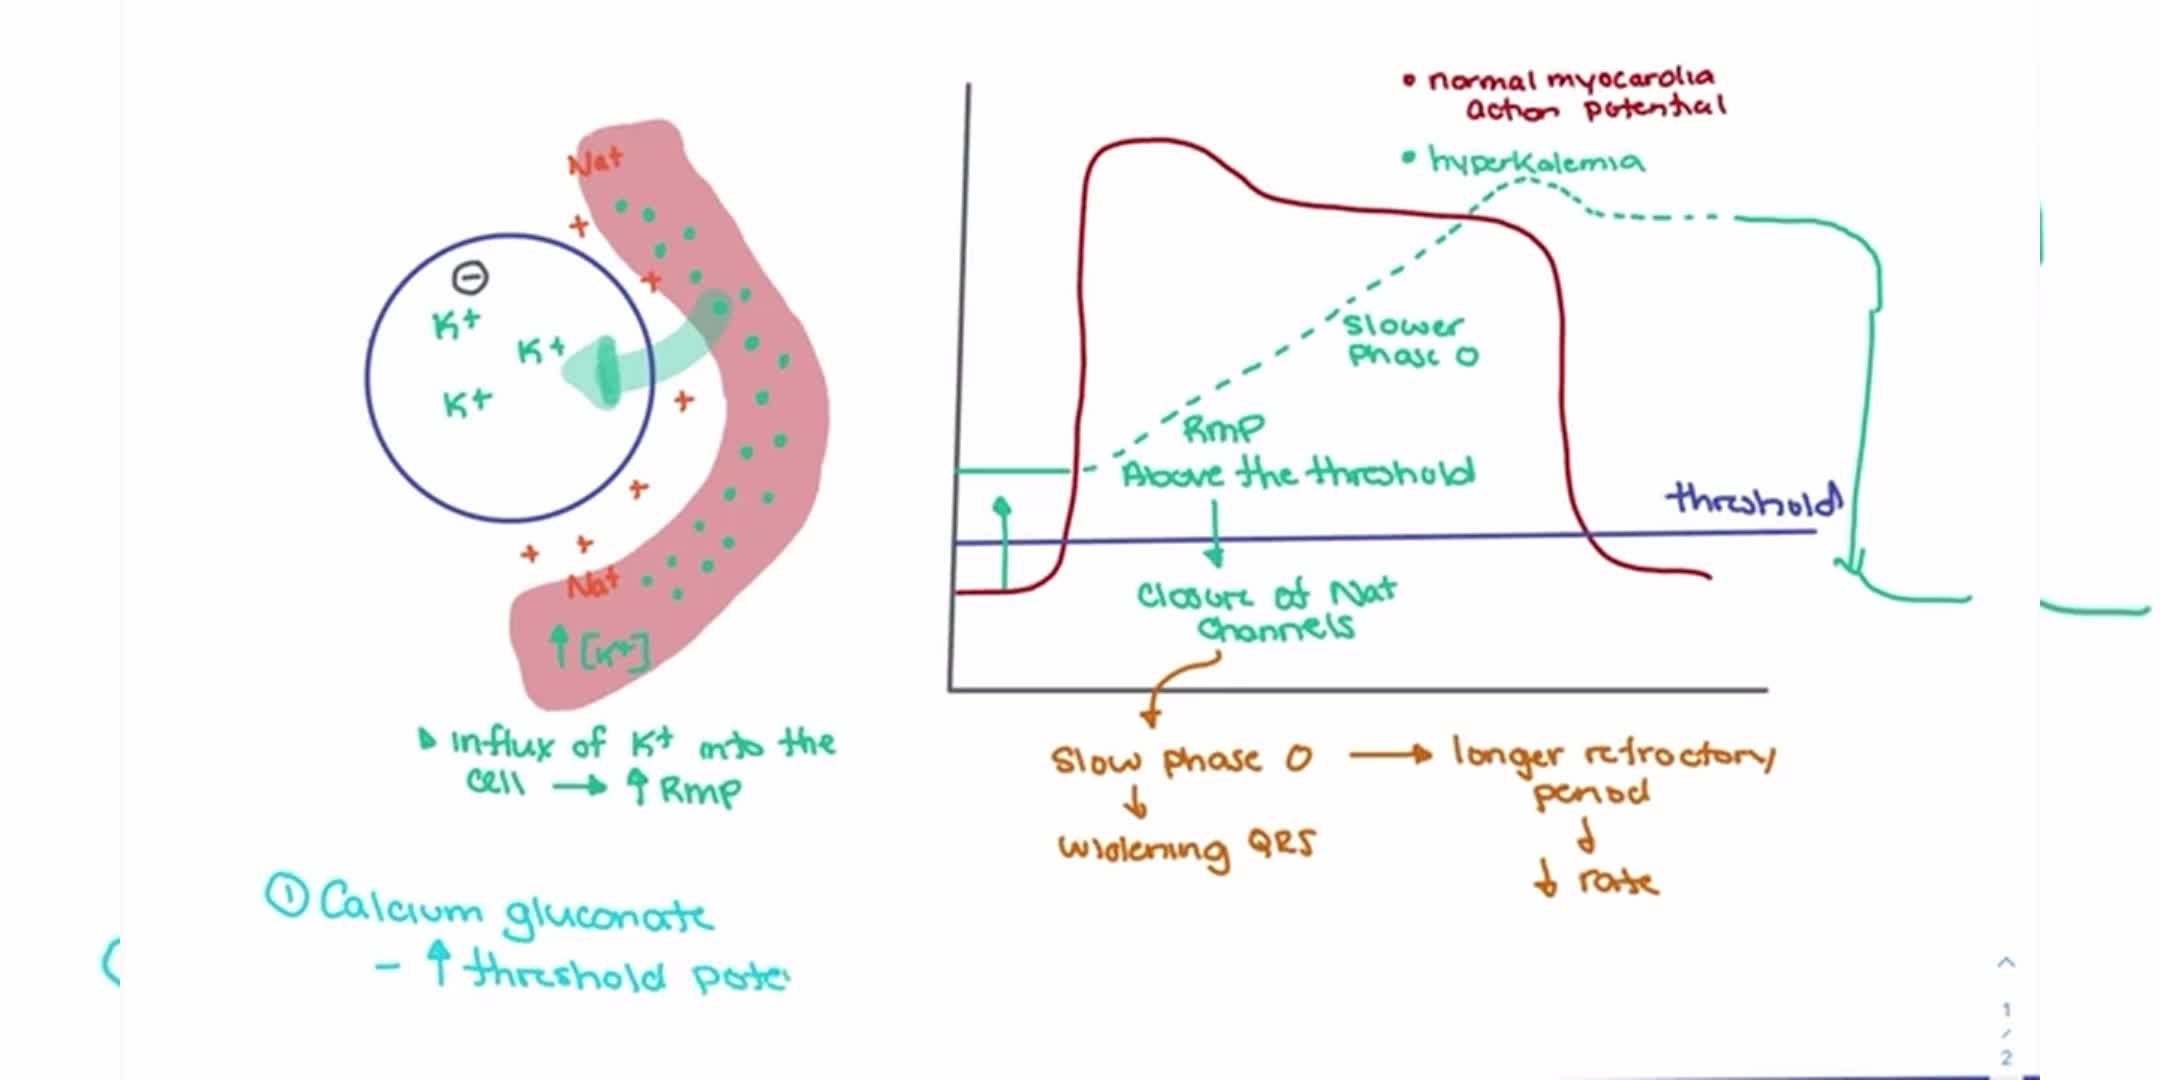 Na+
+
+
⊖
K+
K+
K+
+
+
+ +
Na+
↑ [K+]
Influx of K+ into the
cell → ↑ Rmp
① Calcium gluconate
- ↑ threshold pote
• normal myocardia
action potential
• hyperkalemia
Slower
Phase 0
Rmp
Above the threshold
↓
threshold
Closure of Na+
channels
Slow phase 0 → longer refractory
period
↓
widening QRS
↓
↓ rate
1
/
2